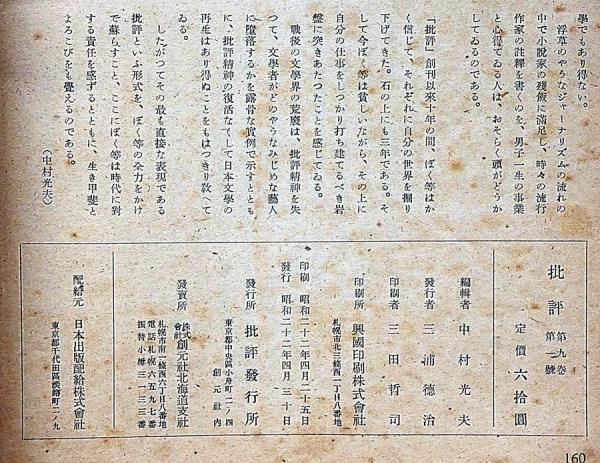 學でもあり得ない。
浮草のやうなジャーナリズムの流れの
中で小説家の殘飯に滿足し、時々の流行
作家の註釋を書くのを、男子一生の事業
と心得てゐる人は、おそらく頭がどうか
してゐるのである。
「批評」創刊以來十年の間、ぼく等はか
く信じて、それぞれに自分の世界を掘り
下げてきた。石の上にも三年である。そ
して今ぼく等は貧しいながら、その上に
自分の仕事をしつかり打ち建てるべき岩
盤に突きあたつたことを感じてゐる。
戰後の文學界の荒廢は、批評精神を失
つて、文學者がどのやうなみじめな藝人
に墮落するかを露骨な實例で示すととも
に、批評精神の復活なくして日本文學の
再生はあり得ぬことをもはつきり敎へて
ゐる。
したがつてその最も直接な表現である
批評といふ形式を、ぼく等の全力をかけ
て蘇らすこと、ここにぼく等は時代に對
する責任を感ずるとともに、生き甲斐と
よろこびをも覺えるのである。
(中村光夫)
批評 第九卷 第一號
定價六拾圓
編輯者 中村光夫
發行者 三浦德治
印刷者 三田哲司
印刷所 興國印刷株式會社
札幌市北三條西一丁目八番地
印刷 昭和二十二年四月二十五日
發行 昭和二十二年四月三十日
發行所 批評發行所
東京都中央區小舟町二ノ四
創元社內
發賣所 株式會社創元社北海道支社
札幌市南一條西六丁目八番地
電話札幌六五九七番
振替小樽三一三三番
配給元 日本出版配給株式會社
東京都千代田區淡路町二ノ九
160